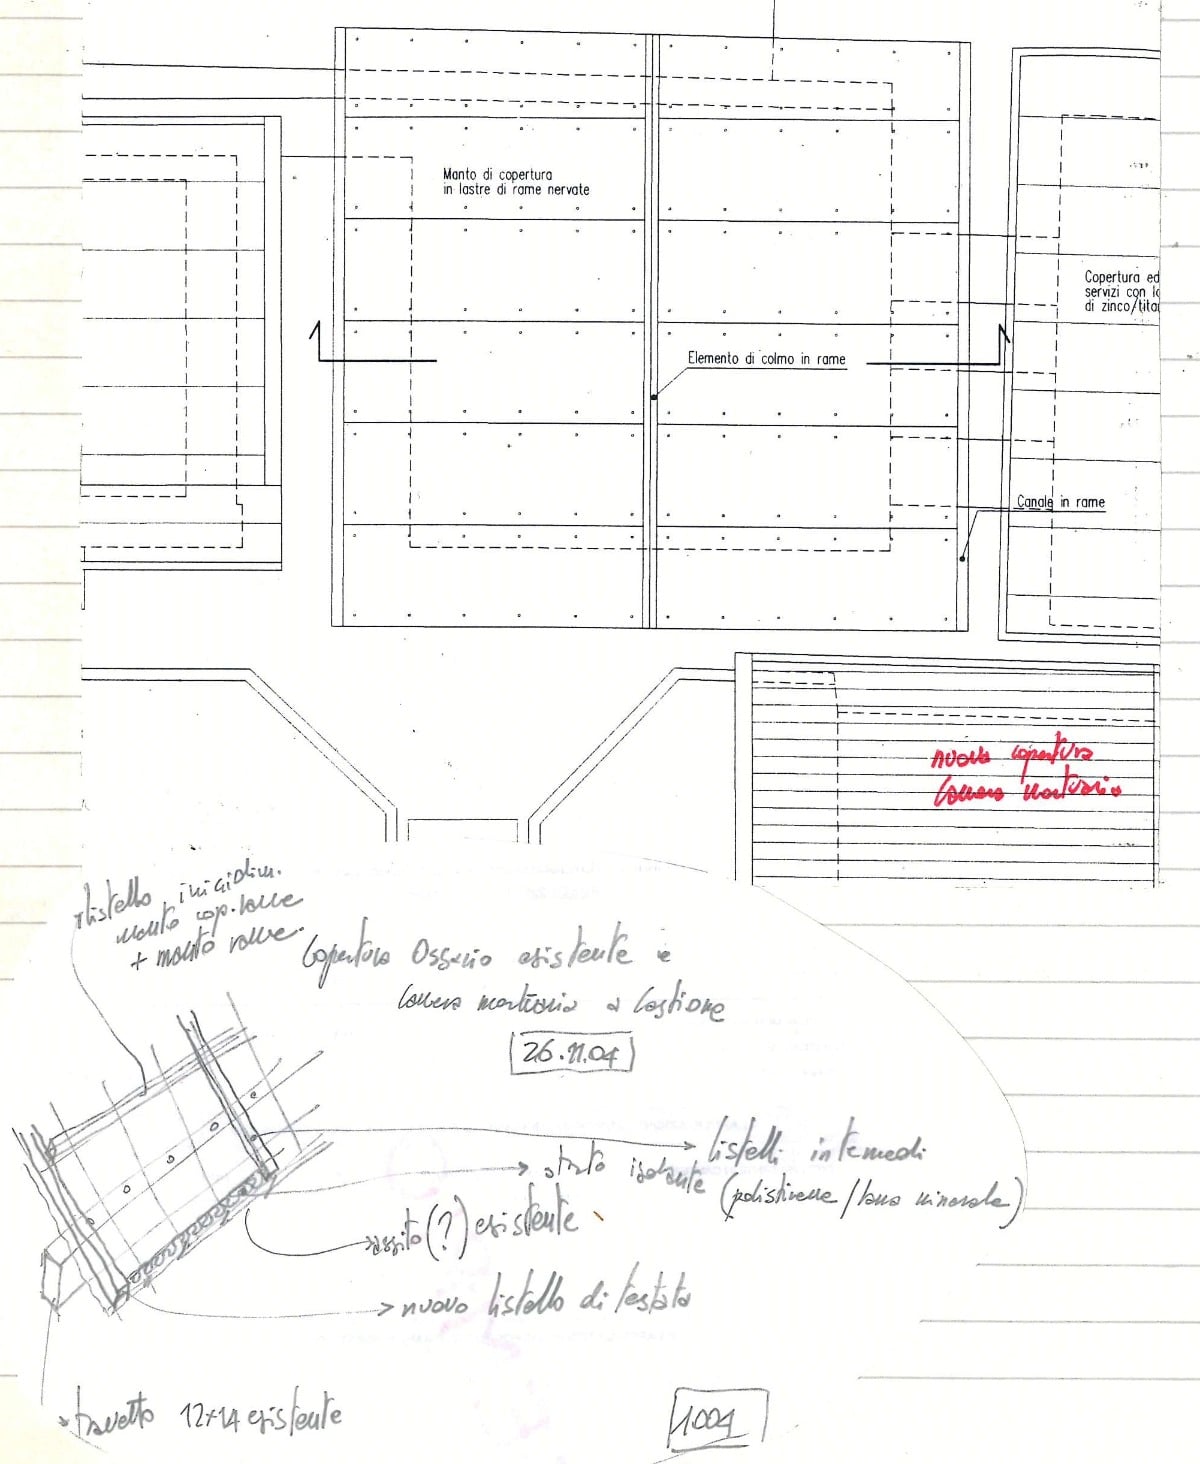 Manto di copertura
in lastre di rame nervate
Copertura ed
servizi con l
di zinco/tita
Elemento di colmo in rame
Canale in rame
nuova copertura
camera mortuaria
listello
manto cop.
+ manto rame.
Copertura Ossario esistente e
camera mortuaria a Castione
26.11.04
listelli intermedi
strato isolante (polistirene/lana minerale)
assito(?) esistente
nuovo listello di testata
travetto 12x14 esistente
1004